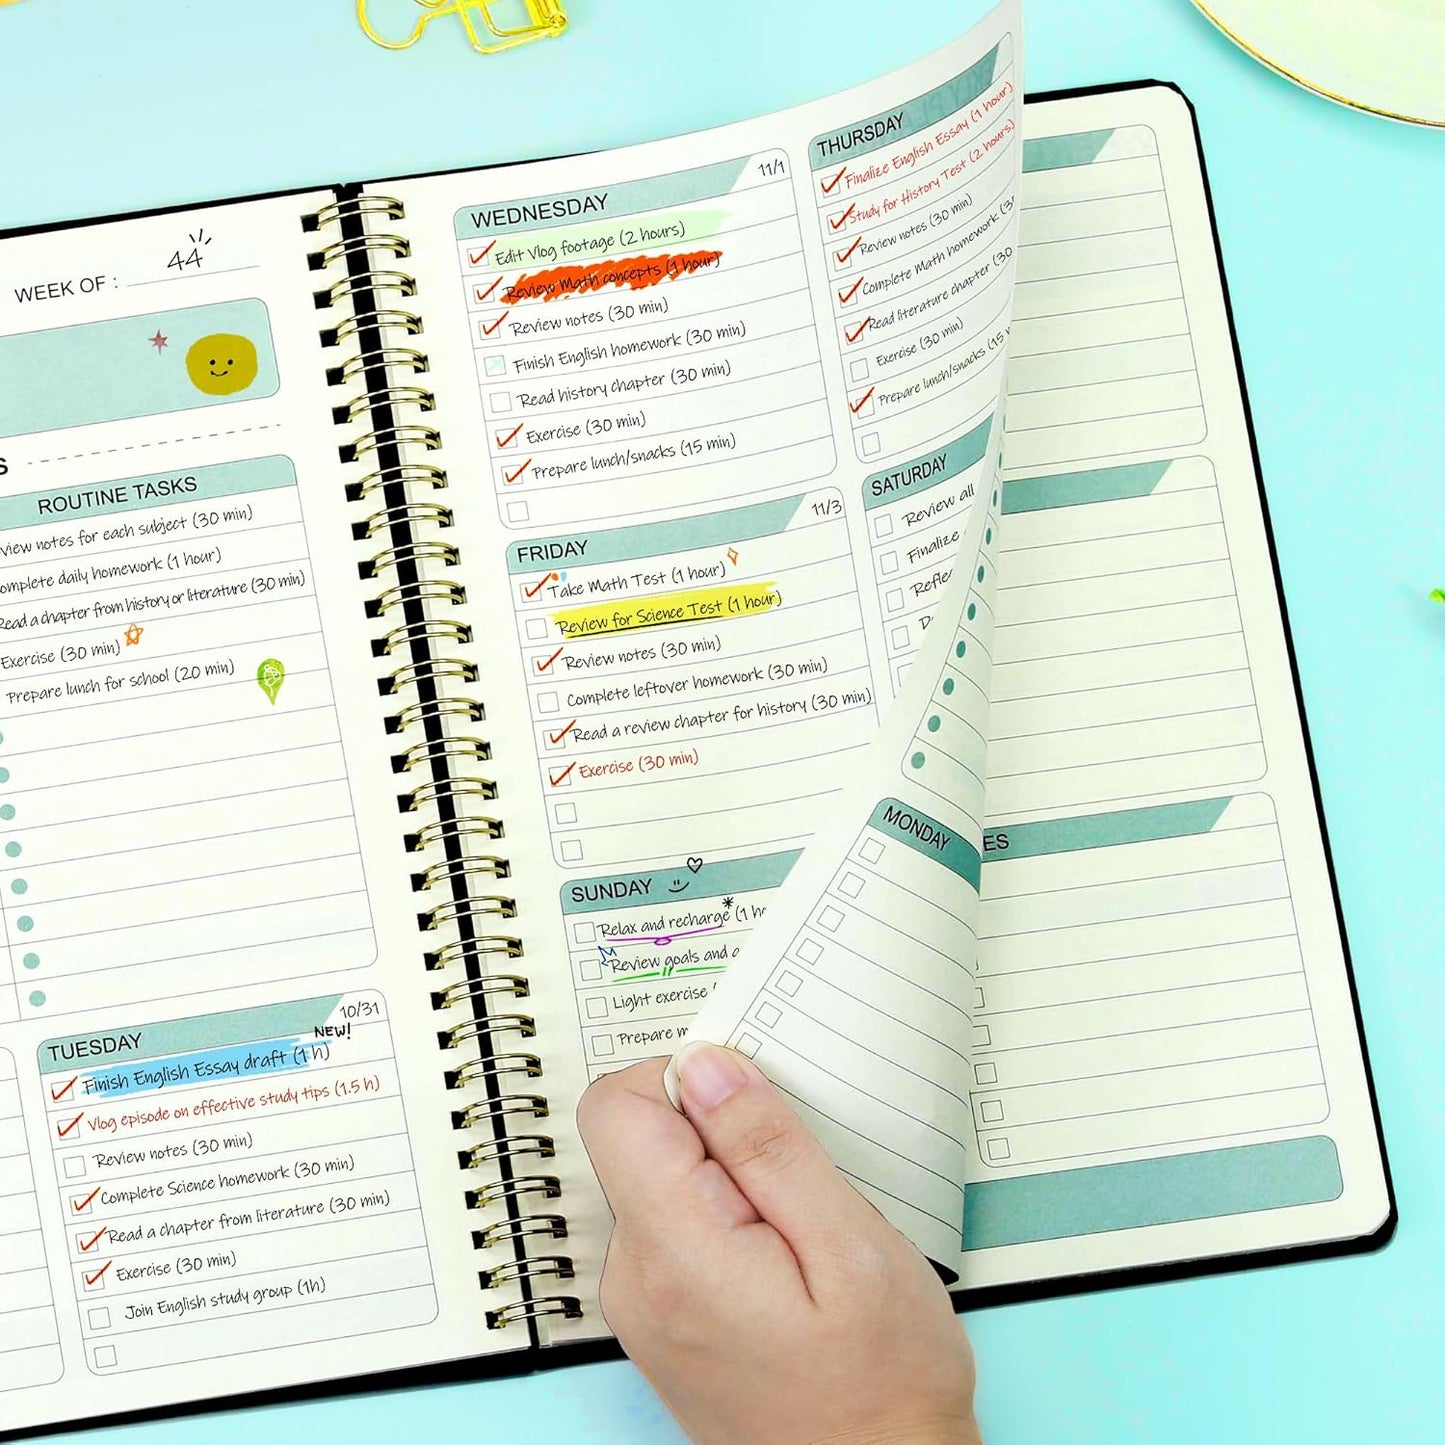 WEEK OF : 44
S
ROUTINE TASKS
view notes for each subject (30 min)
omplete daily homework (1 hour)
Read a chapter from history or literature (30 min)
Exercise (30 min)
Prepare lunch for school (20 min)
TUESDAY 10/31
NEW!
Finish English Essay draft (1 h)
Vlog episode on effective study tips (1.5 h)
Review notes (30 min)
Complete Science homework (30 min)
Read a chapter from literature (30 min)
Exercise (30 min)
Join English study group (1h)
WEDNESDAY 11/1
Edit Vlog footage (2 hours)
Review Math concepts (1 hour)
Review notes (30 min)
Finish English homework (30 min)
Read history chapter (30 min)
Exercise (30 min)
Prepare lunch/snacks (15 min)
THURSDAY
Finalize English Essay (1 hour)
Study for History Test (2 hours)
Review notes (30 min)
Complete Math homework (3
Read literature chapter (30
Exercise (30 min)
Prepare lunch/snacks (15
FRIDAY 11/3
Take Math Test (1 hour)
Review for Science Test (1 hour)
Review notes (30 min)
Complete leftover homework (30 min)
Read a review chapter for history (30 min)
Exercise (30 min)
SATURDAY
Review all
Finalize
Refle
SUNDAY
Relax and recharge (1 ho
Review goals and
Light exercise (
Prepare m
MONDAY
ES